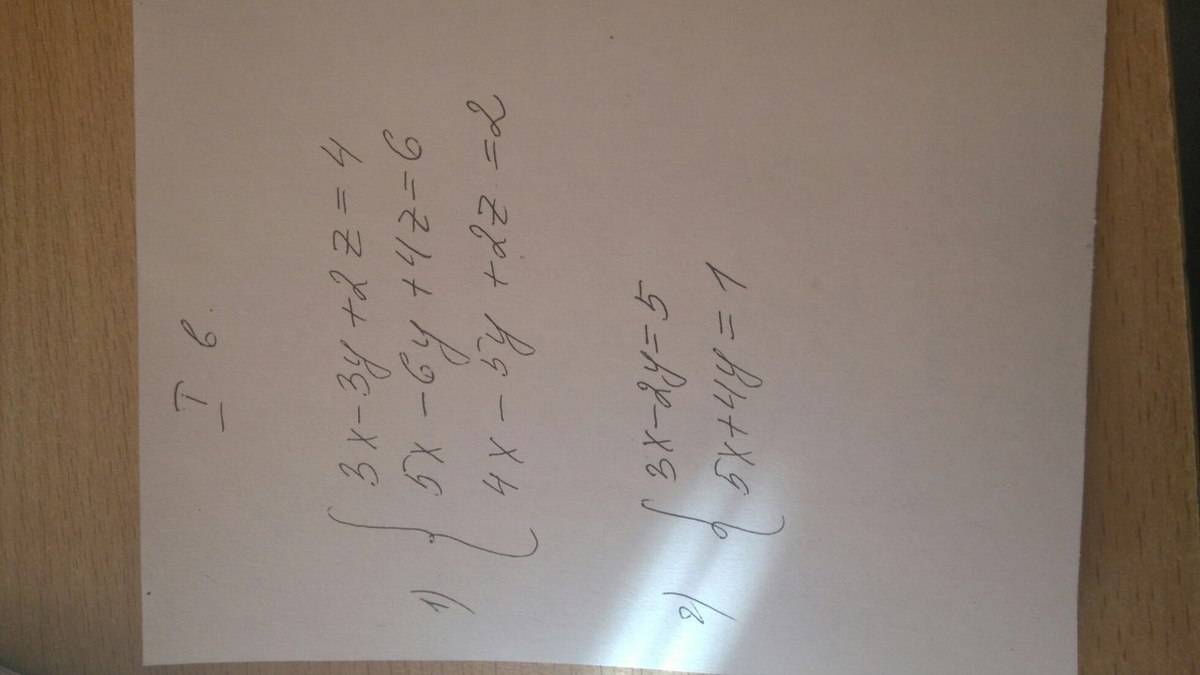 I в.
1) { 3x - 3y + 2z = 4
5x - 6y + 4z = 6
4x - 5y + 2z = 2
2) { 3x - 2y = 5
5x + 4y = 1